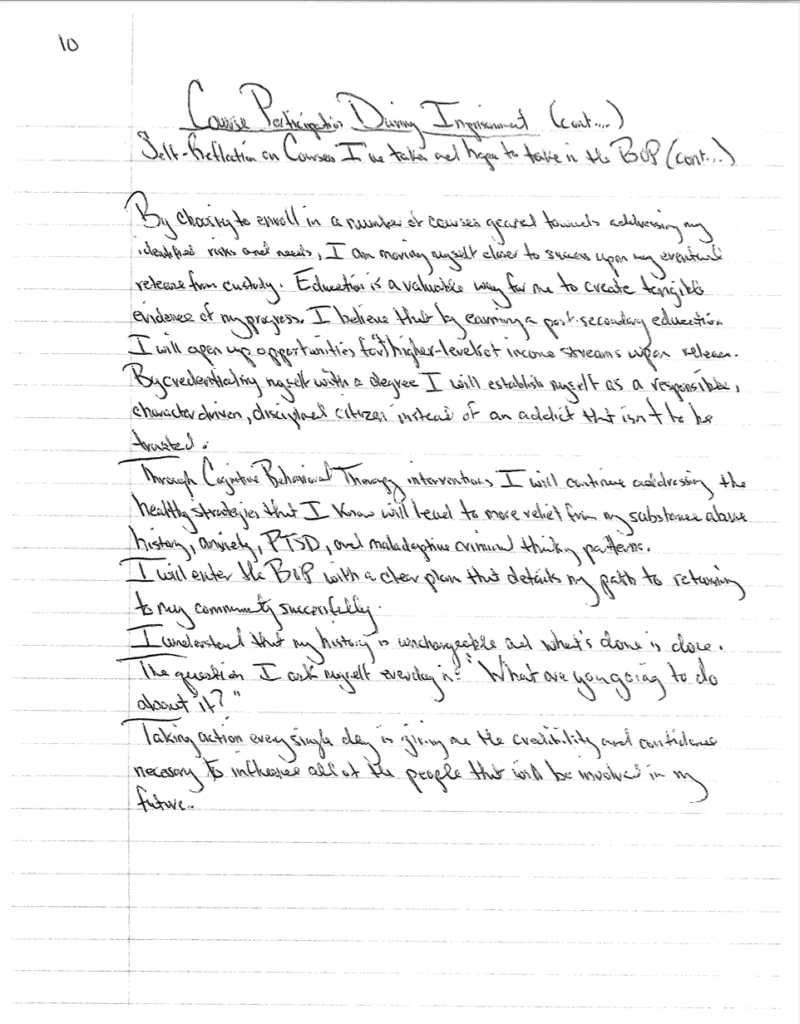 10
Course Participation During Imprisonment (cont....)
Self-Reflection on Courses I've taken and hope to take in the BOP (cont...)
By choosing to enroll in a number of courses geared towards addressing my
identified risks and needs, I am moving myself closer to success upon my eventual
release from custody. Education is a valuable way for me to create tangible
evidence of my progress. I believe that by earning a post-secondary education
I will open up opportunities for higher-levels of income streams upon release.
By credentialing myself with a degree I will establish myself as a responsible,
character driven, disciplined citizen instead of an addict that isn't to be
trusted.
Through Cognitive Behavioral Therapy interventions I will continue addressing the
healthy strategies that I know will lead to more relief from my substance abuse
history, anxiety, PTSD, and maladaptive criminal thinking patterns.
I will enter the BOP with a clear plan that details my path to returning
to my community successfully.
I understand that my history is unchangeable and what's done is done.
The question I ask myself everyday is: "What are you going to do
about it?"
Taking action every single day is giving me the credibility and confidence
necessary to influence all of the people that will be involved in my
future.